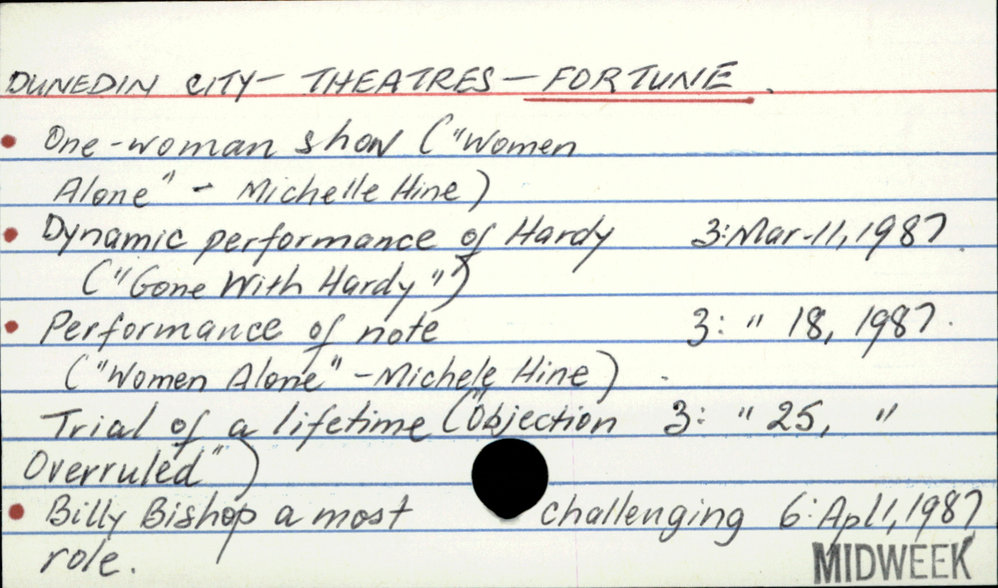 DUNEDIN CITY - THEATRES - FORTUNE.
• One-woman show ("Women
Alone" - Michelle Hine)
• Dynamic performance of Hardy 3: Mar-11, 1987.
("Gone With Hardy")
• Performance of note 3: " 18, 1987.
("Women Alone" - Michele Hine).
Trial of a lifetime ("Objection 3: " 25, "
Overruled")
• Billy Bishop a most challenging 6: Apl 1, 1987
role.
MIDWEEK